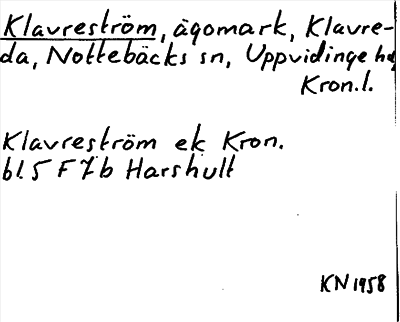 Klavreström, ägomark, Klavre-
da, Nottebäcks sn, Uppvidinge hd
Kron.l.
Klavreström ek Kron.
bl. 5 F 7b Harshult
KN 1958